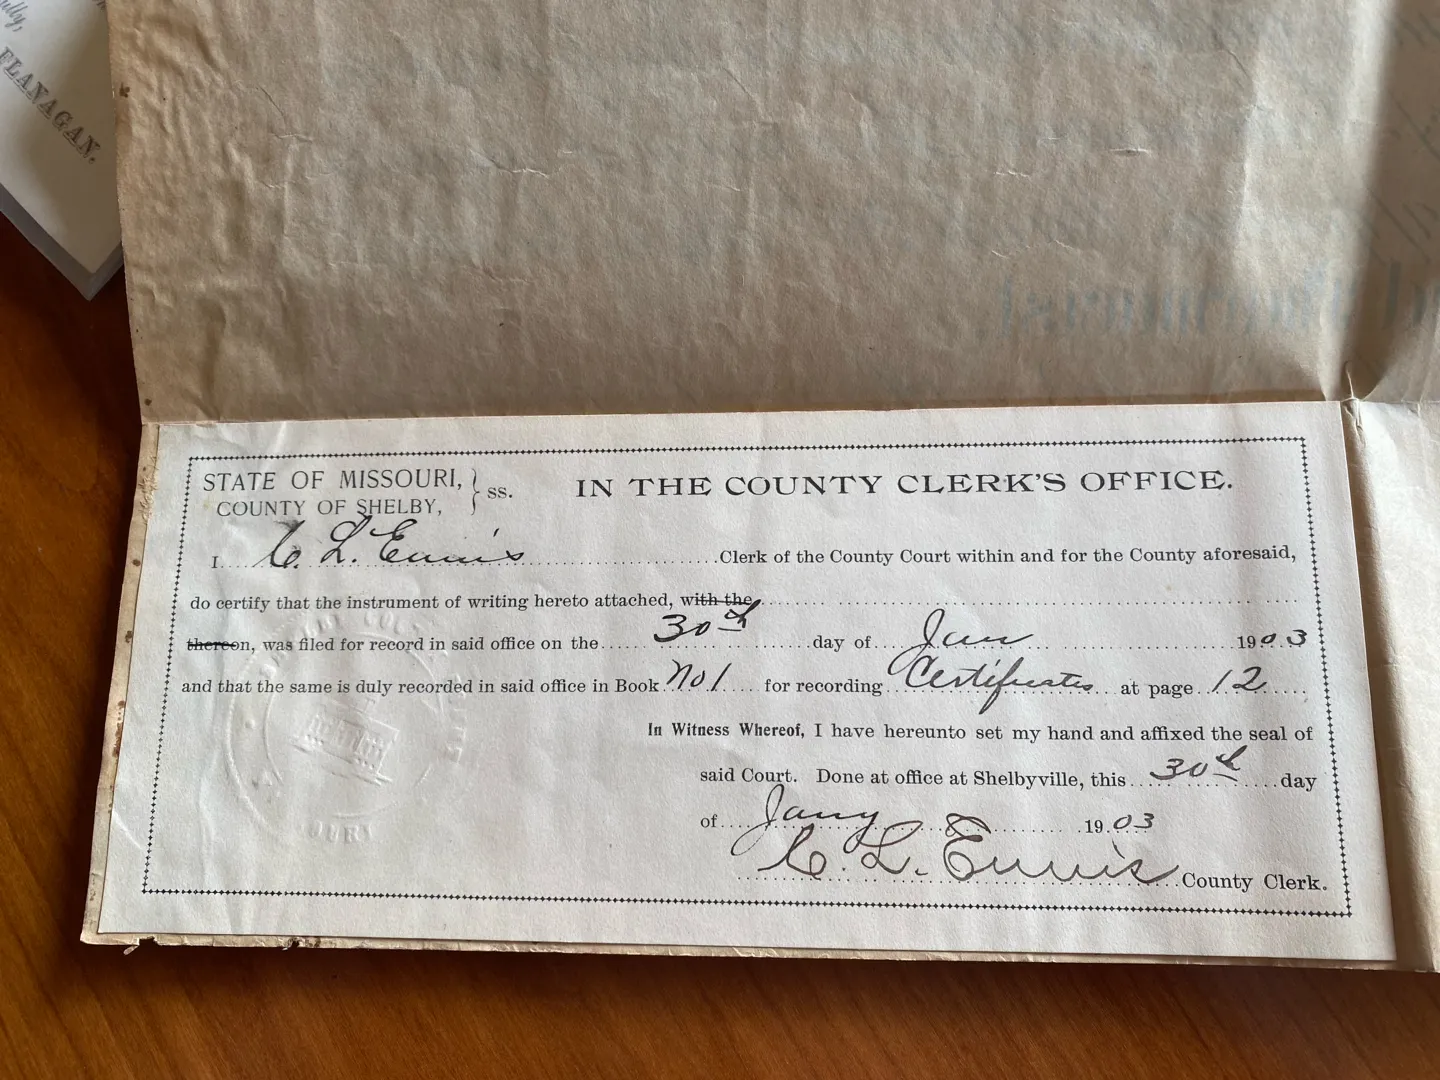 ully,
FLANAGAN.
STATE OF MISSOURI, } ss.
COUNTY OF SHELBY,
IN THE COUNTY CLERK'S OFFICE.
I C. L. Ennis Clerk of the County Court within and for the County aforesaid,
do certify that the instrument of writing hereto attached, with the
thereon, was filed for record in said office on the 30th day of Jan 1903
and that the same is duly recorded in said office in Book No 1 for recording Certificates at page 12
In Witness Whereof, I have hereunto set my hand and affixed the seal of
said Court. Done at office at Shelbyville, this 30th day
of Jany 1903
C. L. Ennis County Clerk.